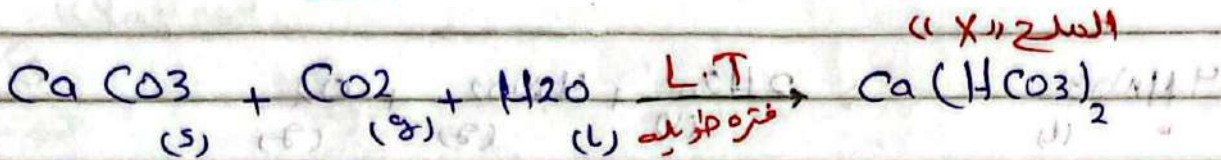 الملح «X»
Ca CO3 (s) + CO2 (g) + H2O (l) L.T فتره طويله → Ca(HCO3)2